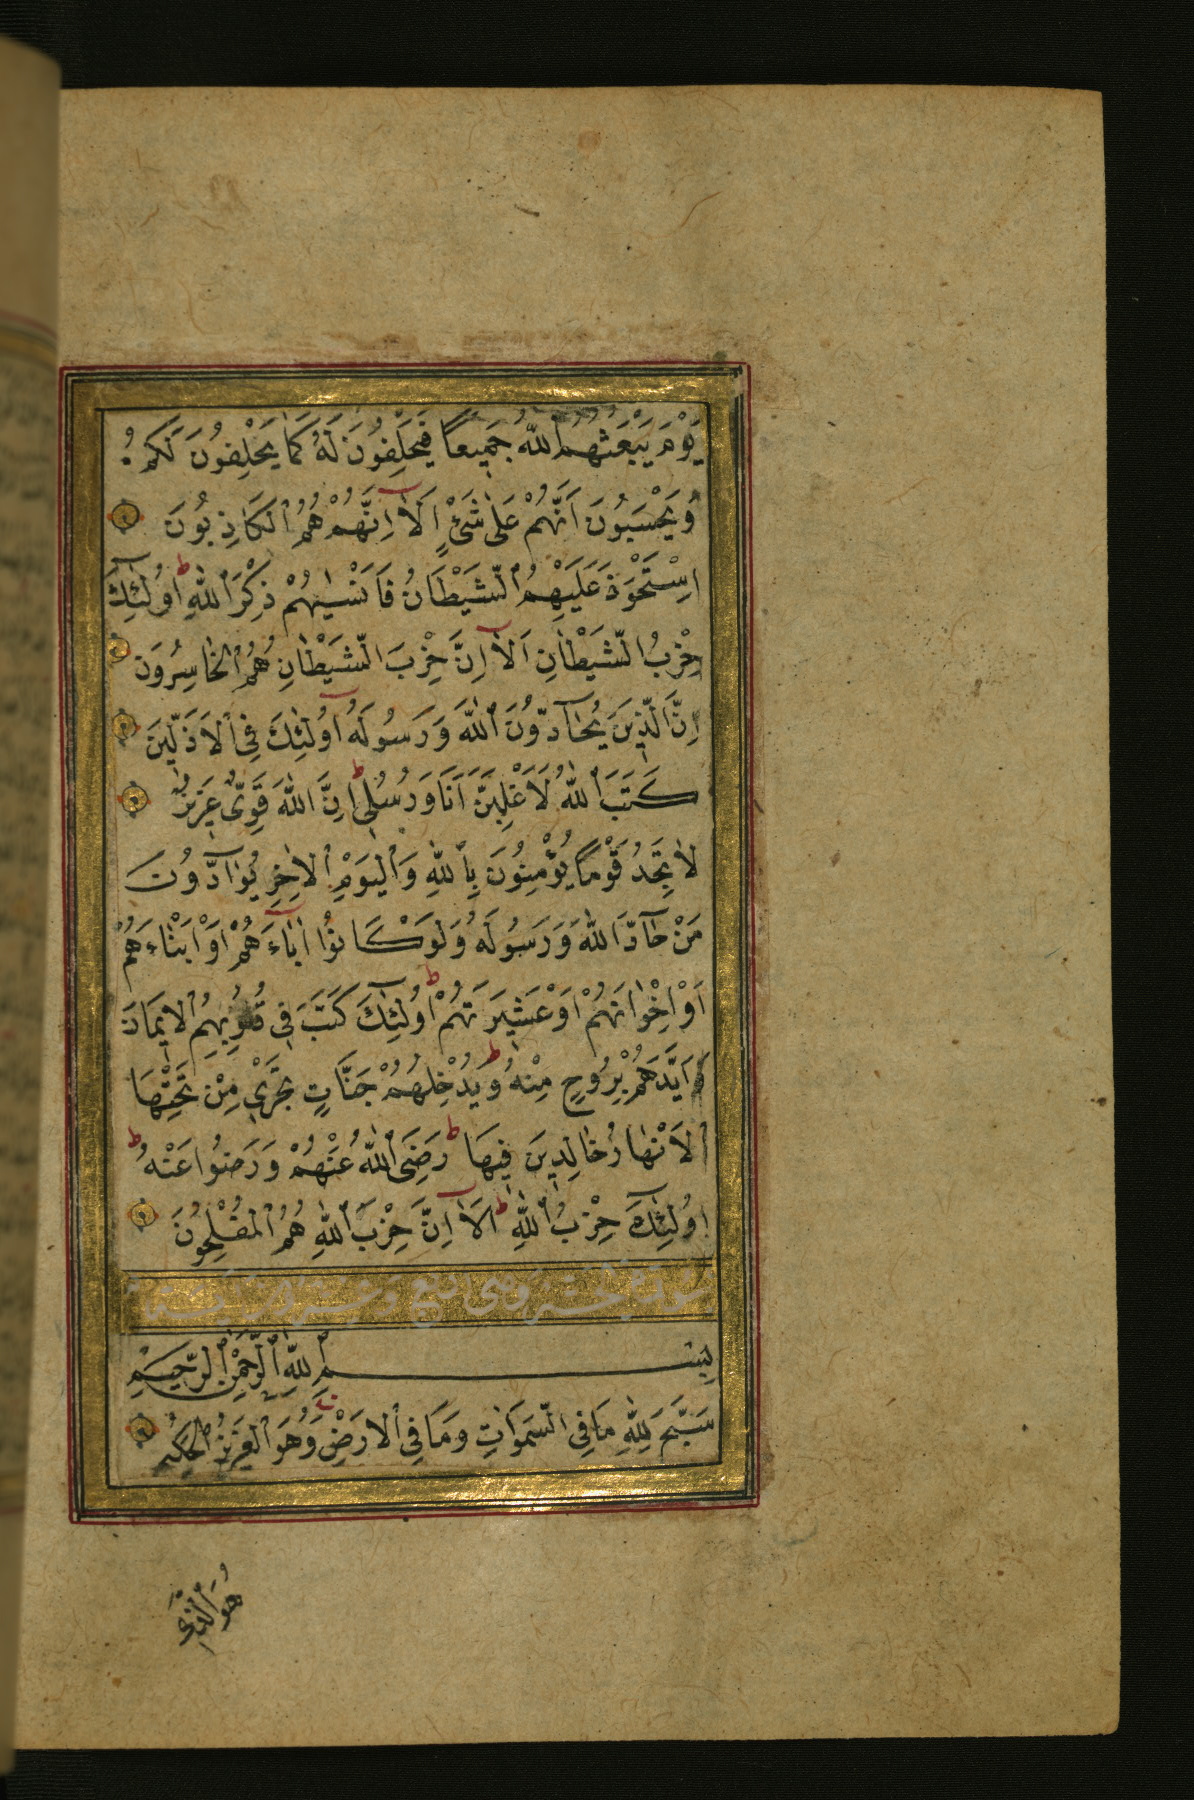 يَوْمَ يَبْعَثُهُمُ ٱللّٰهُ جَمِيعًا فَيَحْلِفُونَ لَهُ كَمَا يَحْلِفُونَ لَكُمْ
وَيَحْسَبُونَ اَنَّهُمْ عَلٰى شَىْءٍ اَلَآ اِنَّهُمْ هُمُ ٱلْكَاذِبُونَ
اِسْتَحْوَذَ عَلَيْهِمُ ٱلشَّيْطَانُ فَاَنْسٰيهُمْ ذِكْرَ ٱللّٰهِ ط اُولٰٓئِكَ
حِزْبُ الشَّيْطَانِ اَلَآ اِنَّ حِزْبَ الشَّيْطَانِ هُمُ ٱلْخَاسِرُونَ
اِنَّ الَّذِينَ يُحَآدُّونَ ٱللّٰهَ وَرَسُولَهُ اُولٰٓئِكَ فِى ٱلْاَذَلِّينَ
كَتَبَ ٱللّٰهُ لَاَغْلِبَنَّ اَنَا وَرُسُلِى ط اِنَّ اللّٰهَ قَوِىٌّ عَزِيزٌ
لَا تَجِدُ قَوْمًا يُؤْمِنُونَ بِٱللّٰهِ وَٱلْيَوْمِ ٱلْاٰخِرِ يُوَآدُّونَ
مَنْ حَآدَّ اللّٰهَ وَرَسُولَهُ وَلَوْ كَانُوٓا اٰبَاءَهُمْ اَوْ اَبْنَاءَهُمْ
اَوْ اِخْوَانَهُمْ اَوْ عَشِيرَتَهُمْ ط اُولٰٓئِكَ كَتَبَ فِى قُلُوبِهِمُ ٱلْاِيمَانَ
وَاَيَّدَهُمْ بِرُوحٍ مِنْهُ ط وَيُدْخِلُهُمْ جَنَّاتٍ تَجْرِى مِنْ تَحْتِهَا
ٱلْاَنْهَارُ خَالِدِينَ فِيهَا ط رَضِىَ ٱللّٰهُ عَنْهُمْ وَرَضُوا عَنْهُ ط
اُولٰٓئِكَ حِزْبُ ٱللّٰهِ ط اَلَآ اِنَّ حِزْبَ ٱللّٰهِ هُمُ ٱلْمُفْلِحُونَ
سورة الحشر وهى اربع وعشرون آية
بِسْمِ ٱللّٰهِ ٱلرَّحْمٰنِ ٱلرَّحِيمِ
سَبَّحَ لِلّٰهِ مَا فِى السَّمٰوَاتِ وَمَا فِى ٱلْاَرْضِ وَهُوَ ٱلْعَزِيزُ ٱلْحَكِيمُ
هُوَ ٱلَّذِى